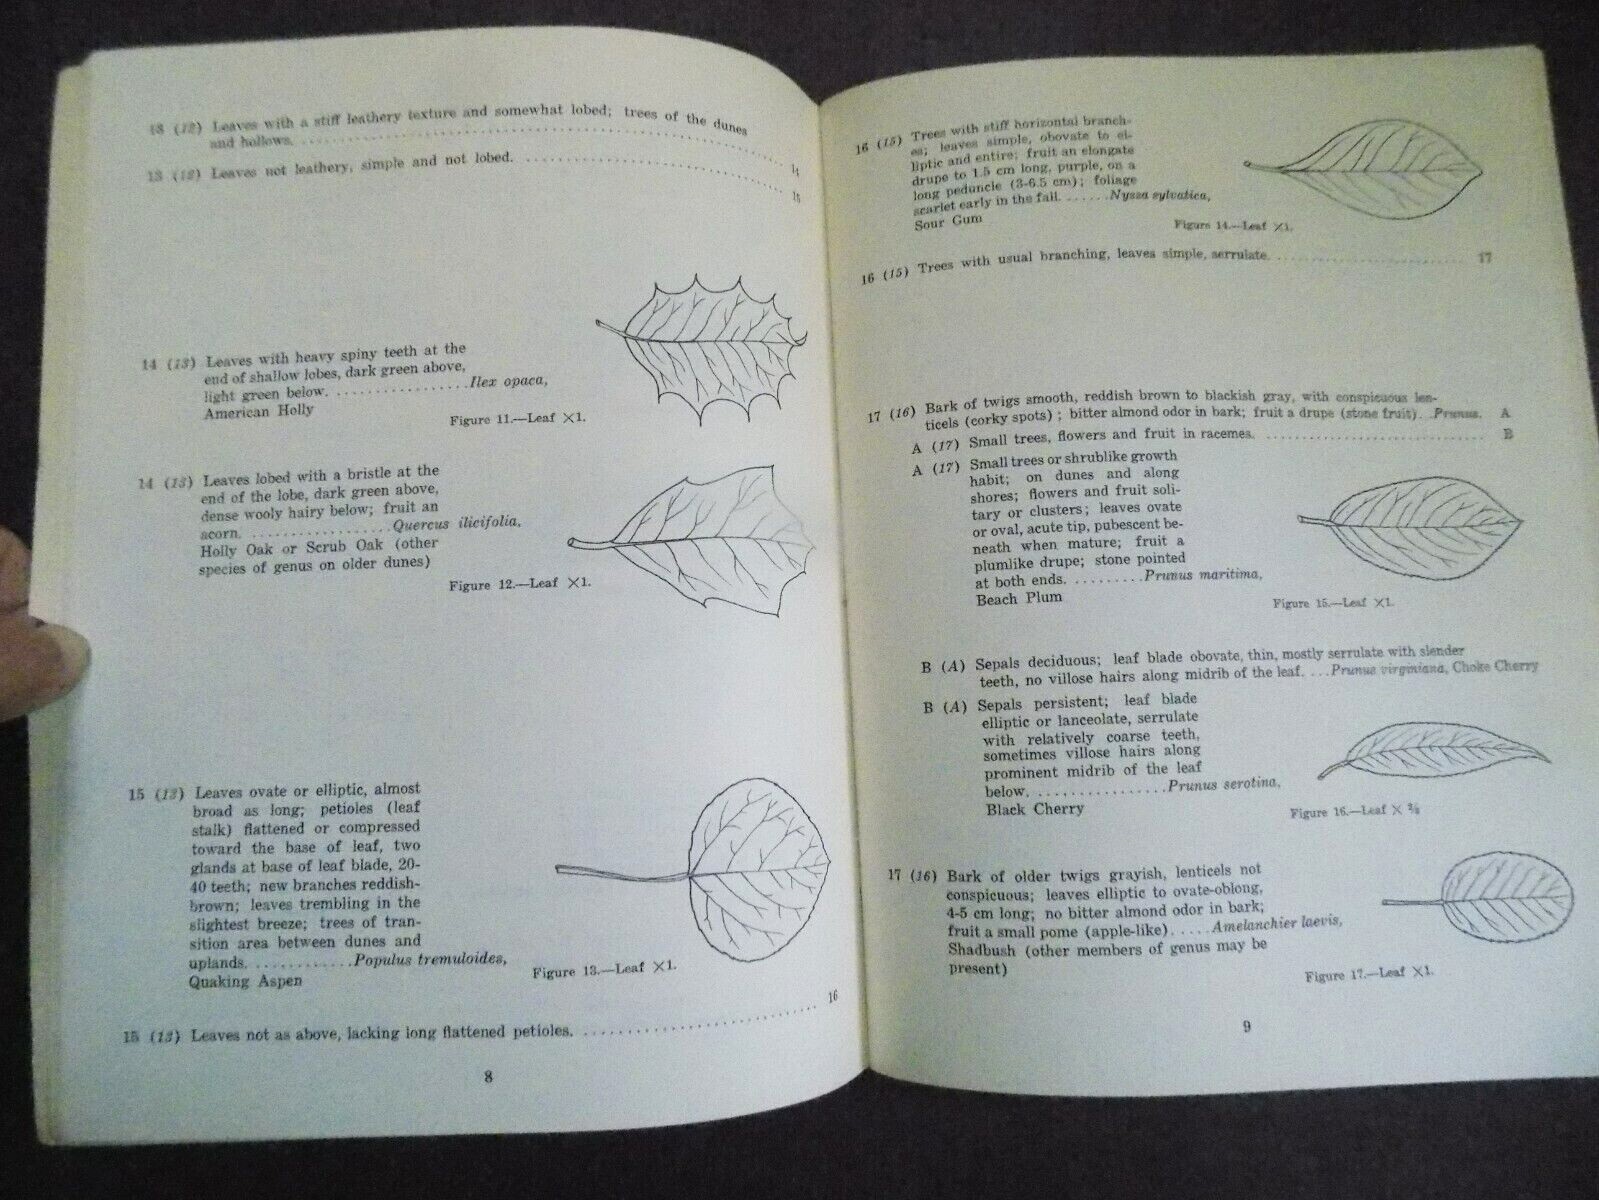 13 (12) Leaves with a stiff leathery texture and somewhat lobed; trees of the dunes
and hollows. .......... 14
13 (12) Leaves not leathery, simple and not lobed. .......... 15
14 (13) Leaves with heavy spiny teeth at the
end of shallow lobes, dark green above,
light green below. .......... Ilex opaca,
American Holly
Figure 11.—Leaf ×1.
14 (13) Leaves lobed with a bristle at the
end of the lobe, dark green above,
dense wooly hairy below; fruit an
acorn. .......... Quercus ilicifolia,
Holly Oak or Scrub Oak (other
species of genus on older dunes)
Figure 12.—Leaf ×1.
15 (13) Leaves ovate or elliptic, almost
broad as long; petioles (leaf
stalk) flattened or compressed
toward the base of leaf, two
glands at base of leaf blade, 20-
40 teeth; new branches reddish-
brown; leaves trembling in the
slightest breeze; trees of tran-
sition area between dunes and
uplands. .......... Populus tremuloides,
Quaking Aspen
Figure 13.—Leaf ×1.
15 (13) Leaves not as above, lacking long flattened petioles. .......... 16
8
16 (15) Trees with stiff horizontal branch-
es; leaves simple, obovate to el-
liptic and entire; fruit an elongate
drupe to 1.5 cm long, purple, on a
long peduncle (3-6.5 cm); foliage
scarlet early in the fall. ....... Nyssa sylvatica,
Sour Gum
Figure 14.—Leaf ×1.
16 (15) Trees with usual branching, leaves simple, serrulate. .......... 17
17 (16) Bark of twigs smooth, reddish brown to blackish gray, with conspicuous len-
ticels (corky spots); bitter almond odor in bark; fruit a drupe (stone fruit). .Prunus. A
A (17) Small trees, flowers and fruit in racemes. .......... B
A (17) Small trees or shrublike growth
habit; on dunes and along
shores; flowers and fruit soli-
tary or clusters; leaves ovate
or oval, acute tip, pubescent be-
neath when mature; fruit a
plumlike drupe; stone pointed
at both ends. ......... Prunus maritima,
Beach Plum
Figure 15.—Leaf ×1.
B (A) Sepals deciduous; leaf blade obovate, thin, mostly serrulate with slender
teeth, no villose hairs along midrib of the leaf. ...Prunus virginiana, Choke Cherry
B (A) Sepals persistent; leaf blade
elliptic or lanceolate, serrulate
with relatively coarse teeth,
sometimes villose hairs along
prominent midrib of the leaf
below. .......... Prunus serotina,
Black Cherry
Figure 16.—Leaf ×
17 (16) Bark of older twigs grayish, lenticels not
conspicuous; leaves elliptic to ovate-oblong,
4-5 cm long; no bitter almond odor in bark;
fruit a small pome (apple-like). .....Amelanchier laevis,
Shadbush (other members of genus may be
present)
Figure 17.—Leaf ×1.
9